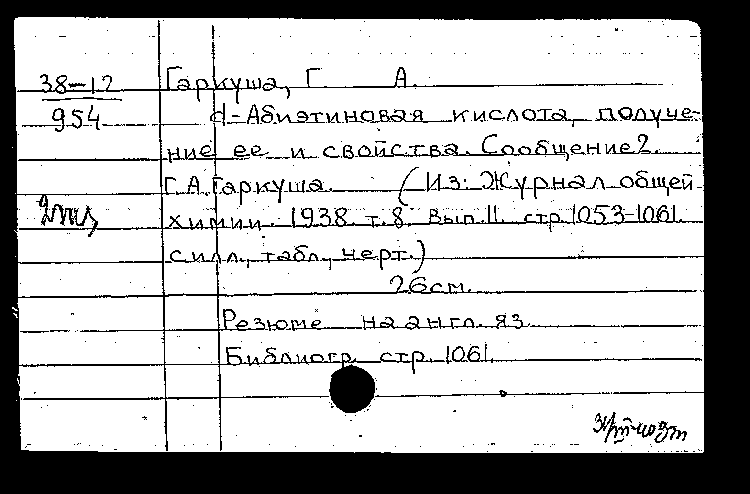 38-12
954
Гаркуша, Г. А.
d-Абиэтиновая кислота, получе-
ние ее и свойства. Сообщение 2.
Г.А. Гаркуша. (Из: Журнал общей
химии. 1938 т. 8. вып. 11. стр. 1053-1061.
с илл., табл., черт.)
26 см.
Резюме на англ. яз.
Библиогр. стр. 1061.